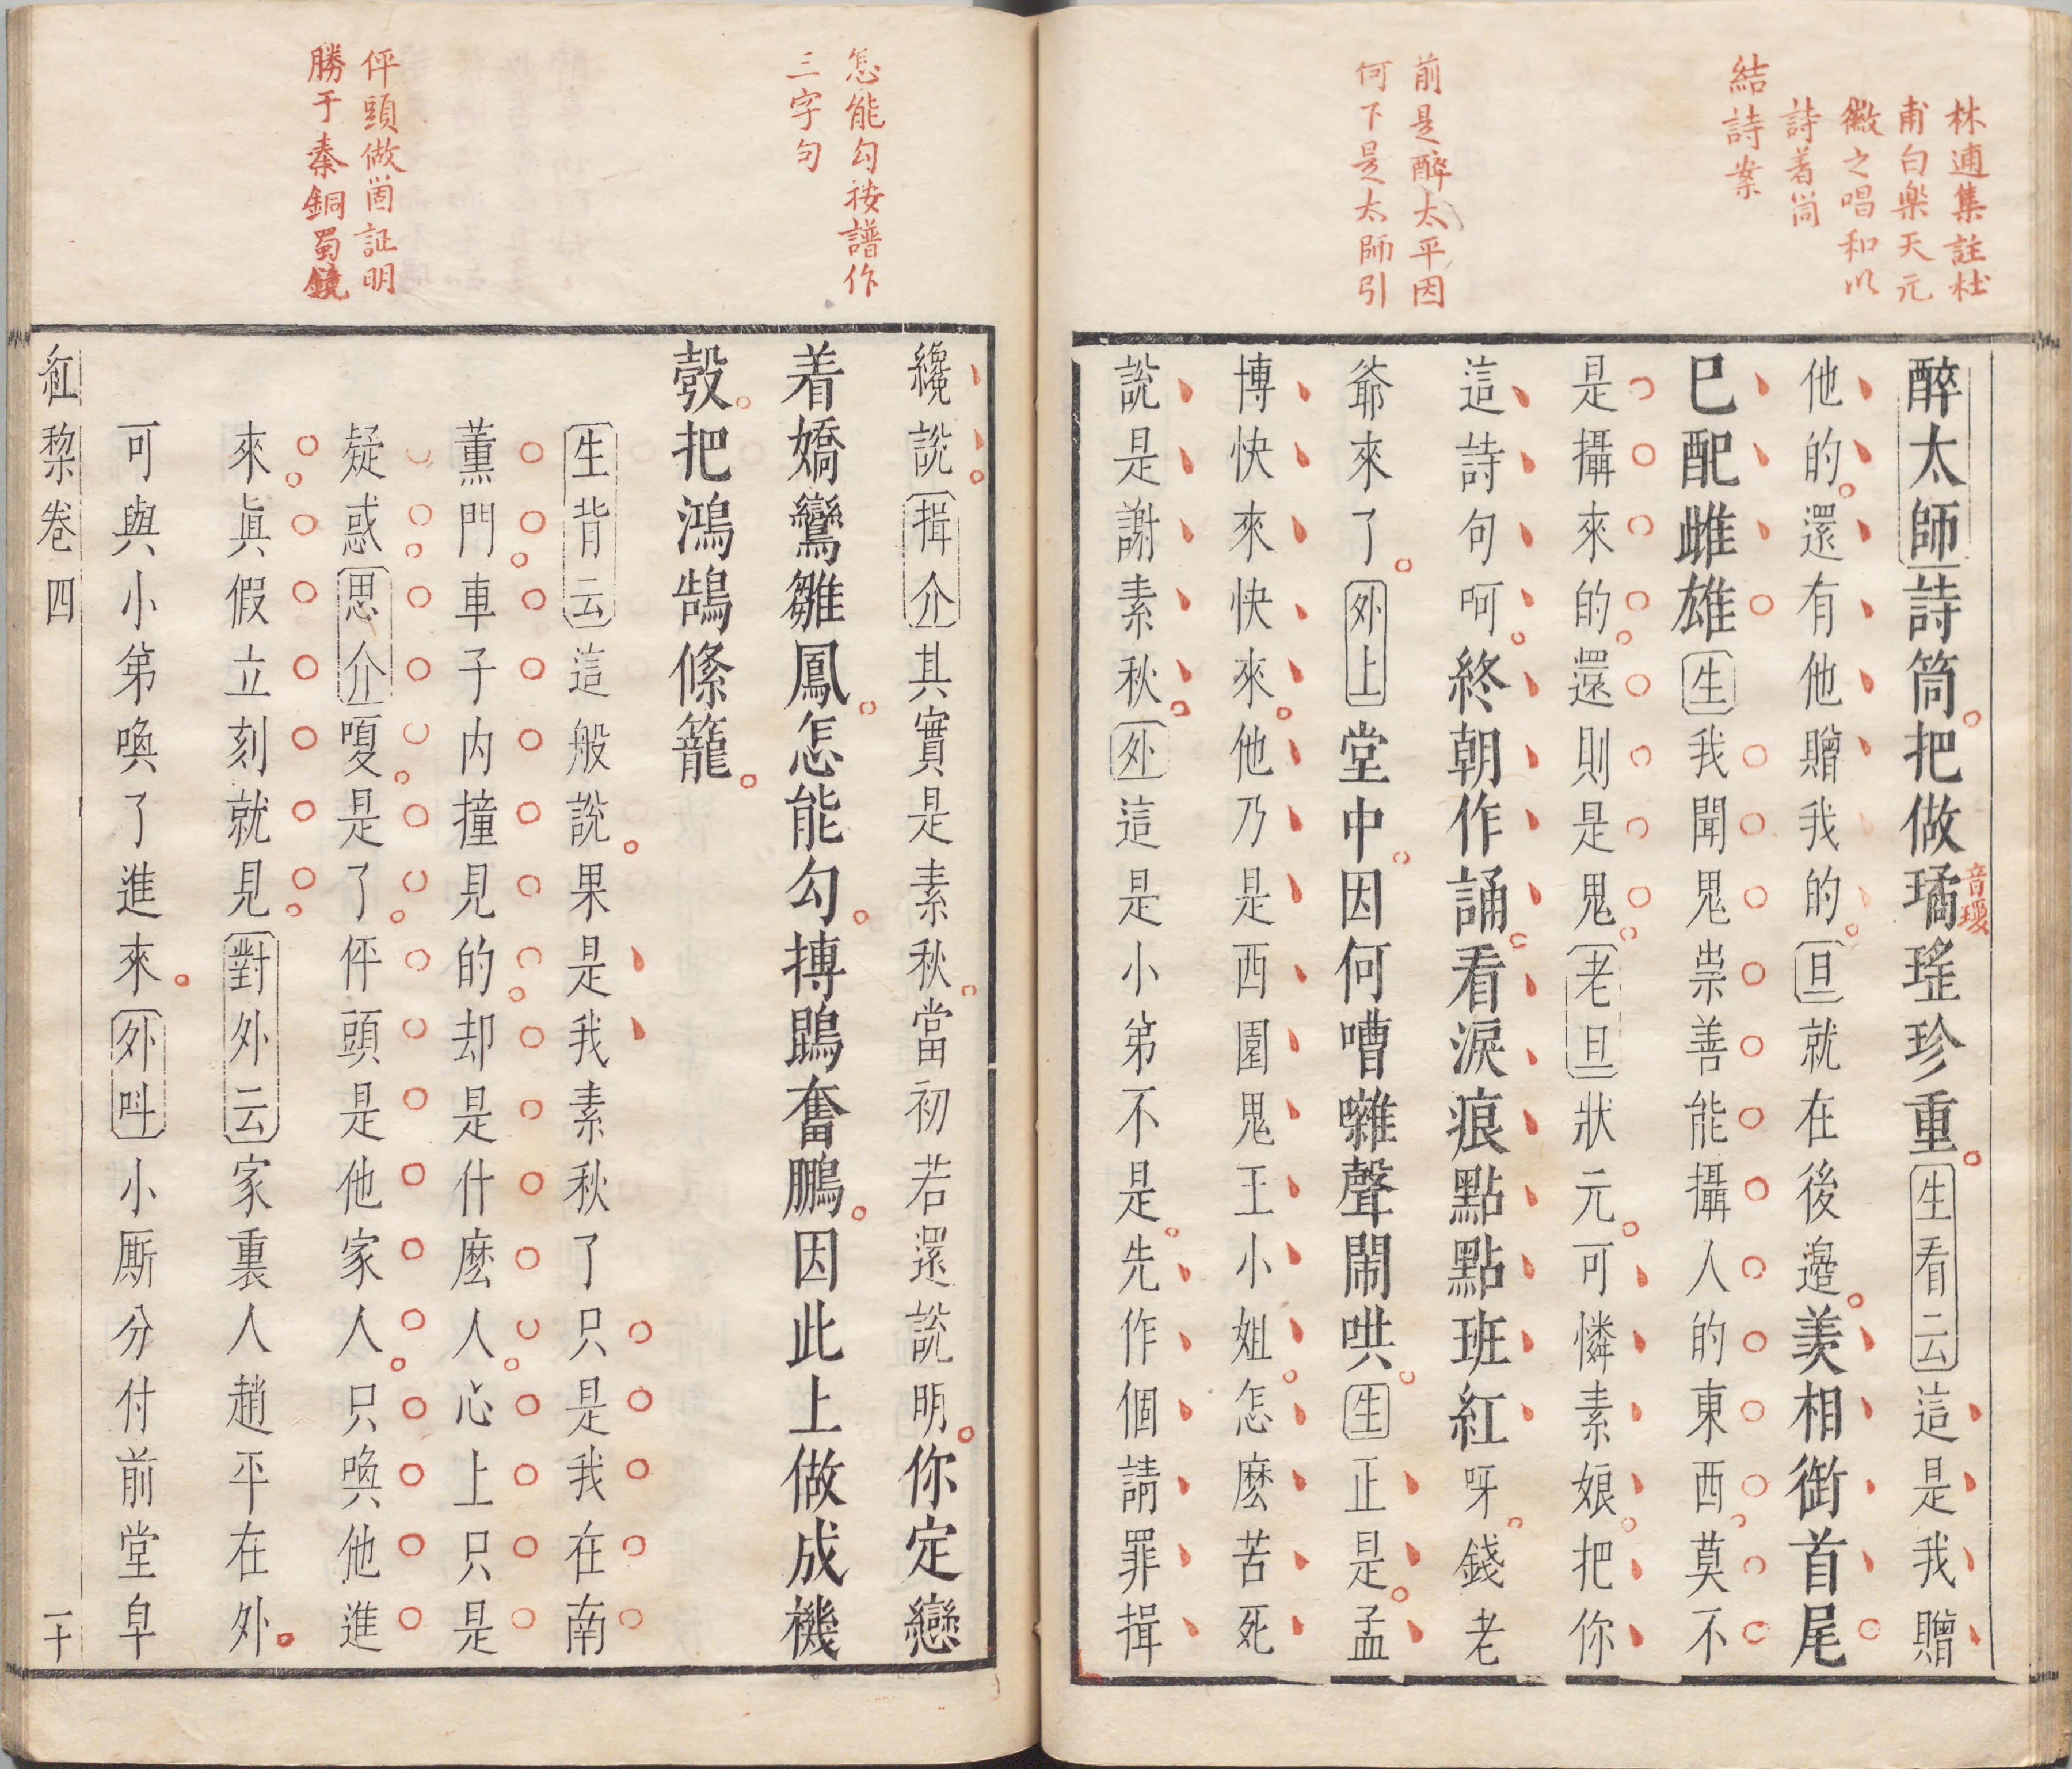 林逋集註杜
甫白楽天元
徽之唱和以
詩着筒
結詩案
前是醉太平因
何下是太師引
醉太師詩筒把做璚瑤珍重生看云這是我贈
音瓊
他的還有他贈我的旦就在後邉羨相銜首尾
巳配雌雄生我聞鬼祟善能攝人的東西莫不
是攝來的還則是鬼老旦狀元可憐素娘把你
這詩句呵終朝作誦看淚痕點點班紅呀錢老
爺來了外上堂中因何嘈囃聲鬧哄生正是孟
博快來快來他乃是西園鬼王小姐怎麽苦死
說是謝素秋外這是小弟不是先作個請罪揖
怎能勾按譜作
三字句
伻頭做箇証明
勝于秦銅蜀鏡
纔說揖介其實是素秋當初若還說明你定戀
着嬌鸞雛鳳怎能勾摶鵾奮鵬因此上做成機
彀把鴻鵠絛籠
生背云這般說果是我素秋了只是我在南
薰門車子内撞見的却是什麽人心上只是
疑惑思介嗄是了伻頭是他家人只喚他進
來眞假立刻就見對外云家裏人趙平在外
可與小弟喚了進來外呌小厮分付前堂皁
紅梨卷四
二十